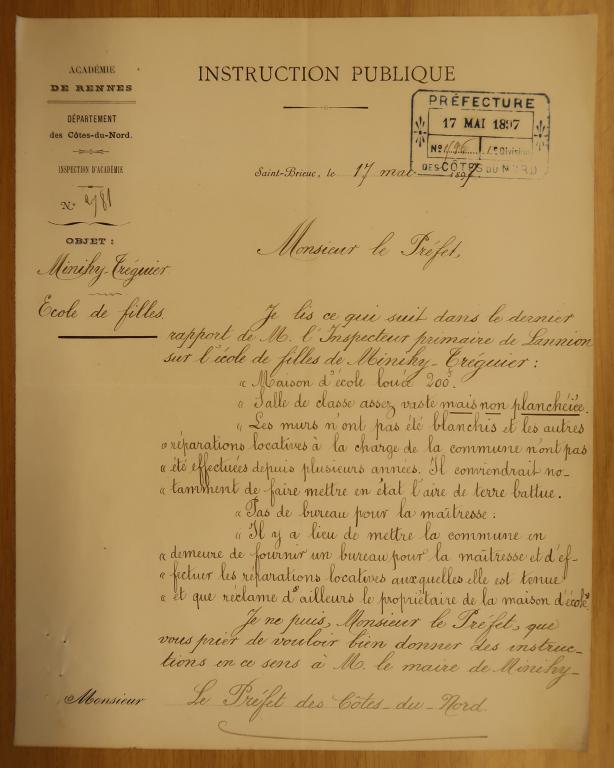 ACADÉMIE
DE RENNES
DÉPARTEMENT
des Côtes-du-Nord.
INSPECTION D'ACADÉMIE
N°
OBJET :
Minihy-Tréguier
Ecole de filles.
INSTRUCTION PUBLIQUE
PRÉFECTURE
17 MAI 1897
N° Division
DES CÔTES DU NORD
Saint-Brieuc, le 17 mai 1897
Monsieur le Préfet,
Je lis ce qui suit dans le dernier
rapport de M. l'Inspecteur primaire de Lannion
sur l'école de filles de Minihy-Tréguier :
" Maison d'école louée 200f.
" Salle de classe assez vaste mais non planchéiée.
" Les murs n'ont pas été blanchis et les autres
" réparations locatives à la charge de la commune n'ont pas
" été effectuées depuis plusieurs années. Il conviendrait no-
" tamment de faire mettre en état l'aire de terre battue.
" Pas de bureau pour la maîtresse :
" Il y a lieu de mettre la commune en
" demeure de fournir un bureau pour la maîtresse et d'ef-
" fectuer les réparations locatives auxquelles elle est tenue
" et que réclame d'ailleurs le propriétaire de la maison d'école."
Je ne puis, Monsieur le Préfet, que
vous prier de vouloir bien donner des instruc-
tions en ce sens à M. le maire de Minihy-
Monsieur Le Préfet des Côtes-du-Nord.